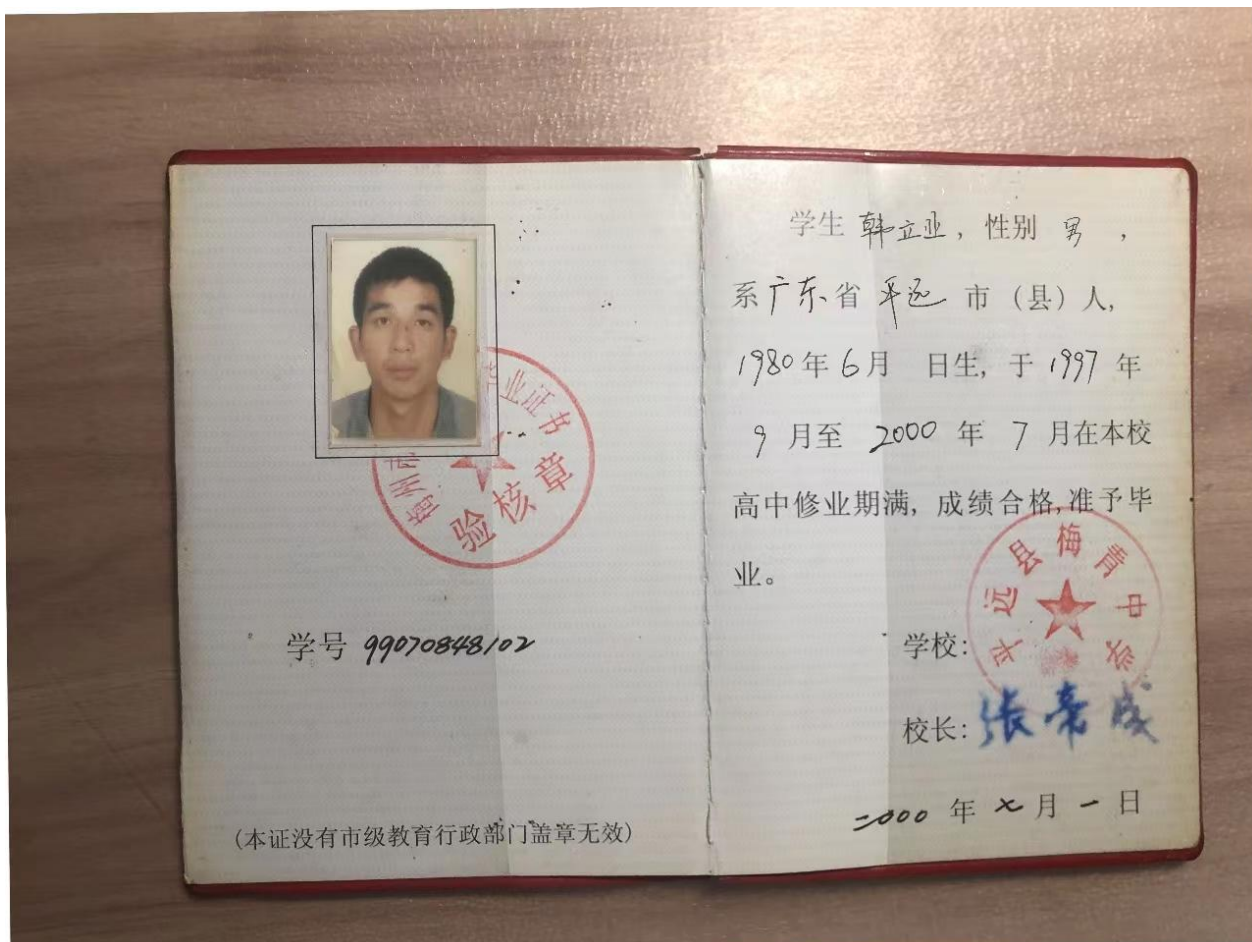 业证书
验核章
学号 99070848102
(本证没有市级教育行政部门盖章无效)
学生 韩立业, 性别 男,
系广东省 平远 市（县）人,
1980年6月 日生, 于 1997 年
9 月至 2000 年 7 月在本校
高中修业期满, 成绩合格,准予毕
业。
平远县梅青中学
学校:
校长: 张
二000 年 七 月 一 日